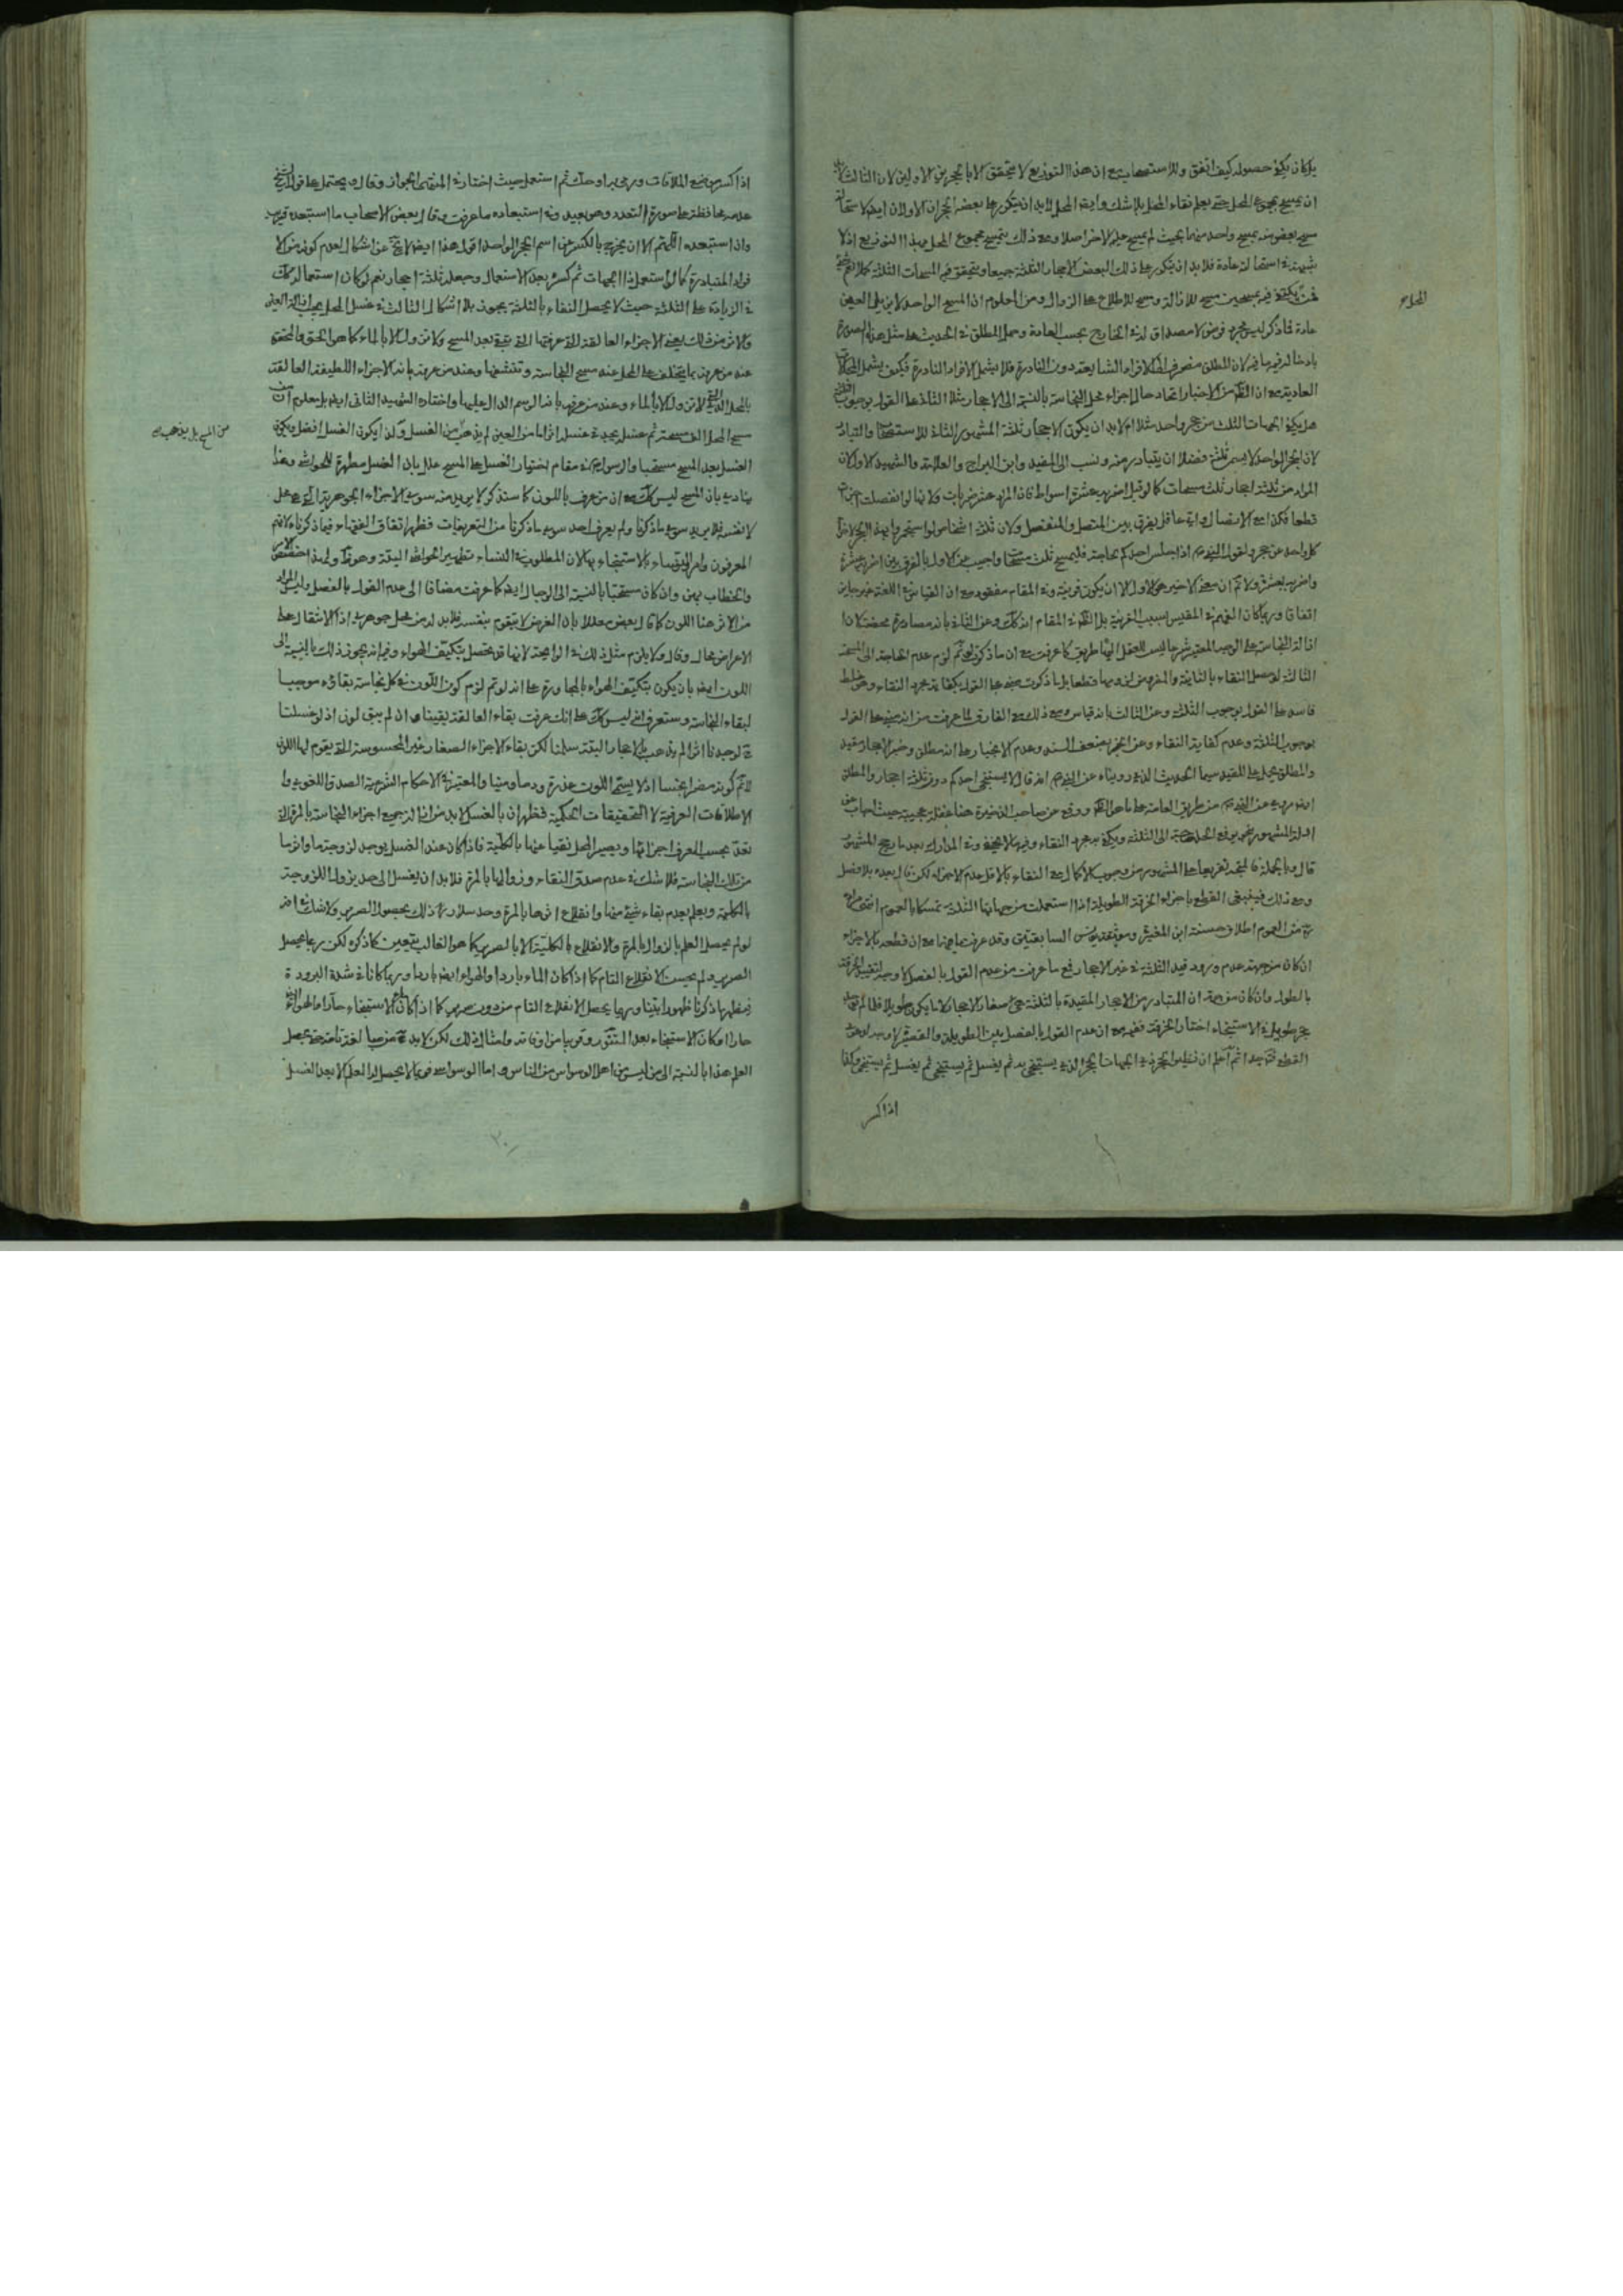 بل كان يكفي حصوله كيف اتفق وللاستصحاب مع ان هذا التوزيع لا يتحقق الا بالحجرين الاولين لان الثالث لابد
ان يمسح مجموع المحل حتى يعلم نقاء المحل بلا شك وايضا المحل لابد ان يكون بعضه الحجران الاولان ايضا
مسح بعض منه بمسح واحد منهما بحيث لم يمسح عليه الاخر اصلا ومع ذلك يتمسح مجموع المحل بهذا التوزيع اذ لا
عادة فلابد ان يكون على ذلك البعض الاحجار الثلثة جميعا ويتحقق فيه المسحات الثلثة
يكتفى فيه بمسحين مسح للازالة ومسح للاطلاع على الزوال ومن المعلوم ان المسح الواحد لا يزيل العين
عادة فما ذكر ليس مجرد فرض لا مصداق له في الخارج بحسب العادة وحمل المطلق في الحديث على مثل هذه الصورة
بادخاله فيها فيه لان المطلق منصرف الى الافراد الشايعة دون النادرة فلا يشمل الافراد النادرة فكيف يشمل
العادية مع ان الظ من الاخبار اتحاد حال اجزاء محل النجاسة بالنسبة الى الاحجار
هل يكفي الجهات الثلث من حجر واحد مثلا ام لابد ان يكون الاحجار ثلثة المشهور الثاني للاستصحاب والتبادر
لان الحجر الواحد لا يسمى ثلثة فضلا ان يتبادر منه ونسب الى المفيد وابن البراج والعلامة والشهيد الاول لان
المراد من ثلثة احجار ثلث مسحات كما لو قيل اضربه عشرة اسواط فان المراد عشر ضربات ولانها لو انفصلت
قطعا فكذا مع الاتصال واي عاقل يفرق بين المتصل والمنفصل ولان ثلثة اشخاص لو استجمروا بهذا الحجر لاجزأ
كل واحد عن حجر ولقول النبي ص اذا جلس احدكم لحاجته فليمسح ثلث مسحات واجيب عن الاول بالفرق بين اضربه عشرة
واضربه بعشرة ولا نم ان معنى الاخير هو الاول الا ان يكون قرينة وفي المقام مفقود مع ان القياس في اللغة غير جايز
اتفاقا وربما كان الفهم في المقيس بسبب القرينة بل الظ في المقام انه كك وعن الثاني بانه مصادرة محضة لان
ازالة النجاسة على الوجه المعتبر شرعا ليس للعقل اليها طريق كما عرفت مع ان ما ذكر لو تم لزم عدم الحاجة الى المسحة
الثالثة لو حصل النقاء بالثانية قطعا بل ما ذكرت مبني على القول بكفاية مجرد النقاء وهو خلط
فاسد على القول بوجوب الثلثة وعن الثالث بانه قياس ومع ذلك مع الفارق لما عرفت من انه مبني على القول
بوجوب الثلثة وعدم كفاية النقاء وعن الخبر بضعف السند وعدم الانجبار على انه مطلق وخبر الاحجار مقيد
والمطلق يحمل على المقيد سيما الحديث الذي رويناه عن النبي ص انه قال لا يستنجي احدكم دون ثلثة احجار والمطلق
ايضا مروي عن النبي ص من طريق العامة على ما هو الظ ووقع من صاحب الذخيرة هنا غفلة عجيبة حيث اجاب عن
ادلة المشهور بنحو يرفع الحاجة الى الثلثة ويكفي مجرد النقاء وفيه ما لا يخفى وفي المدارك بعد ما رجح المشهور
قال وبالجملة فالمتجه تفريعا على المشهور من وجوب الاكمال مع النقاء بالاقل عدم الاجزاء لكن قال بعده بلا فصل
ومع ذلك فينبغي القطع باجزاء الخرقة الطويلة اذا استعملت من جهاتها الثلث تمسكا بالعموم انتهى
من العموم اطلاق حسنة ابن المغيرة وموثقة يونس السابقتين وقد عرفت ما فيهما مع ان قطعه بالاجزاء
ان كان من جهة عدم ورود قيد الثلثة في غير الاحجار فمع ما عرفت من عدم القول بالفصل لا وجه لتقييد الخرقة
بالطول وان كان من جهة ان المتبادر من الاحجار المقيدة بالثلثة هي صغار الاحجار لا ما يكون طويلا
حجر طويل في الاستنجاء اختار الخرقة ففيه مع ان عدم القول بالفصل بين الطويلة والقصيرة لا وجه
القطع ثم اعلم ان الحجر ذي الجهات الحجر الذي يستنجى به ثم يغسل ثم يستنجى ثم يغسل ثم يستنجى وكذا
اذا كسر
المحل
اذا كسر موضع الملاقات ورمي به او حك ثم استعمل حيث اختار في المنتهى الجواز وقال ويحتمل على قول الشيخ
عدمه محافظة على صورة التعدد وهو بعيد وفي استبعاده ما عرفت وقال بعض الاصحاب ما استبعده قريب
واذا استبعده اللهم الا ان يخرج بالكسر عن اسم الحجر الواحد اقول هذا ايضا لا يخ عن اشكال لعدم كونه من الا
فراد المتبادرة كما لو استعمل ذا الجهات ثم كسره بعد الاستعمال وجعله ثلثة احجار نعم لو كان استعماله كك
في الزيادة على الثلثة حيث لا يحصل النقاء بالثلثة يجوز بلا اشكال الثالث في غسل المحل يجب ازالة العين
والاثر من ذلك يعني الاجزاء العالقة التي عرفتها التي تبقى بعد المسح ولا تزول الا بالماء كما هو الحق والمحقق
عند من عرفه بما يتخلف على المحل عند مسح النجاسة وتنشفها وعند من عرفه بانه الاجزاء اللطيفة العالقة
بالمحل التي لا تزول الا بالماء وعند من عرفه بانه الرسم الدال عليها واختاره الشهيد الثاني ايضا بل معلوم ان
مسح المحل الذي مسحته ثم غسل يجد في غسله اثرا ما من العين لم يذهب من الغسل ولذا يكون الغسل افضل ويكون
الغسل بعد المسح مستحبا والرسول ص في مقام اختيار الغسل على المسح علل بان الغسل مطهرة للحواشي وهذا
ينادي بان المسح ليس كك مع ان من عرف باللون كما سنذكر لا يريد منه سوى الاجزاء الجوهرية التي هي محل
لانفسه فلا يريد سوى ما ذكرنا ولم يعرف احد سوى ما ذكرنا من التعريفات فظهر اتفاق الفقهاء فيما ذكرناه
المعرفون وامر النساء بالاستنجاء بالماء لان المطلوب في النساء تطهير الحواشي البتة وهو ظ ولهذا اختص
والخطاب بهن وان كان مستحبا بالنسبة الى الرجال ايضا كما عرفت مضافا الى عدم القول بالفصل وليس المراد
من الاثر هنا اللون كما قال بعض معللا بان العرض لا يتقوم بنفسه فلابد له من محل جوهري اذ الانتقال على
الاعراض محال وقال ولا يلزم مثل ذلك في الرايحة لانها قد تحصل بتكيف الهواء وفيه انه يجوز ذلك بالنسبة الى
اللون ايضا بان يكون بتكيف الهواء بالمجاورة على انه لو تم لزم كون اللون في كل نجاسة بقاؤه موجبا
لبقاء النجاسة وستعرف انه ليس كك على انك عرفت بقاء العالقة يقينا وان لم يبق لون اذ لو غسلت
لوجدنا اثرا لم يذهب بالاحجار البتة سلمنا لكن بقاء الاجزاء الصغار غير المحسوسة التي يقوم لها اللون
لا نم كونه مضرا نجسا اذ لا يسمى اللون عذرة ودما ومنيا والمعتبر في الاحكام الشرعية الصدق اللغوي وا
لاطلاقات العرفية لا التحقيقات الحكمية فظهر ان بالغسل لابد من ازالة جميع اجزاء النجاسة بالمرة التي
تعد بحسب العرف اجزائها ويصير المحل نقيا عنها بالكلية فاذا كان عند الغسل يوجد لزوجة ما واثر ما
من تلك النجاسة فلا شك في عدم صدق النقاء وزوالها بالمرة فلابد ان يغسل الى حد يزول اللزوجة
بالكلية ويعلم بعدم بقاء شيء منها وانقلاع اثرها بالمرة وحد سلار ره ذلك بحصول الصرير ولا شك في انه
لو لم يحصل العلم بالزوال بالمرة والانقلاع بالكلية الا بالصرير كما هو الغالب يتعين كما ذكره لكن ربما يحصل
الصرير ولم يحسن الانقلاع التام كما اذا كان الماء باردا والهواء ايضا باردا وربما كانا في شدة البرودة
فيظهر ما ذكرنا ظهورا بينا وربما يحصل الانقلاع التام من دون صرير كما اذا كان ماء الاستنجاء حارا والهواء
حارا او كان الاستنجاء بعد التنور وقريبا من اوقاته وامثال ذلك لكن لابد ح من مبالغة تامة حتى يحصل
العلم هذا بالنسبة الى من ليس من اهل الوسواس من الناس واما الوسواسي فربما لا يحصل له العلم الا بعد الغسل
من المسح بل يذهب